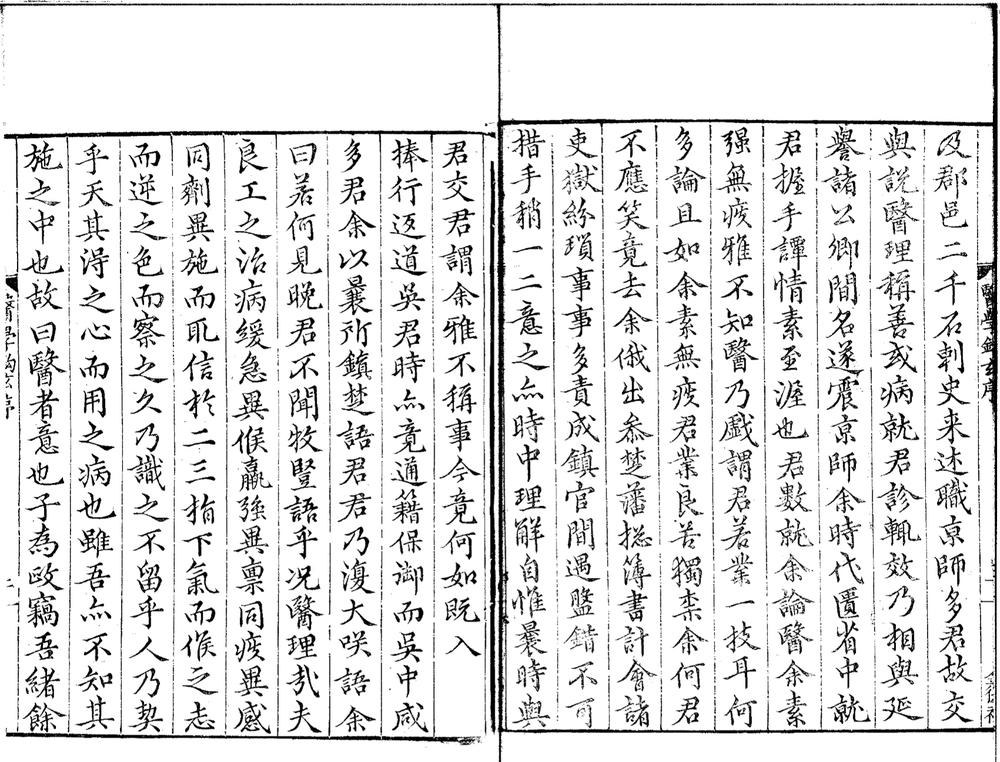 及郡邑二千石刺史来述職京師多君故交
與說醫理稱善或病就君診輒效乃相與延
譽諸公卿間名遂震京師余時代匱省中就
君握手譚情素至渥也君數就余論醫余素
强無疲雅不知醫乃戲謂君若業一技耳何
多論且如余素無疲君業良苦獨柰余何君
不應笑竟去余俄出叅楚藩揔簿書計會諸
吏獄紛瑣事事多責成鎮官間遇盬錯不可
措手稍一二意之亦時中理解自惟曩時與
君交君謂余雅不稱事今竟何如既入
捧行返道吳君時亦竟通籍保御而吳中咸
多君余以曩所鎮楚語君君乃復大咲語余
曰若何見晚君不聞牧豎語乎况醫理㢤夫
良工之治病緩急異候羸強異稟同疲異感
同劑異施而取信於二三指下氣而候之志
而逆之色而察之久乃識之不留乎人乃契
乎天其淂之心而用之病也雖吾亦不知其
施之中也故曰醫者意也子為政竊吾緒餘
醫學鈎玄序